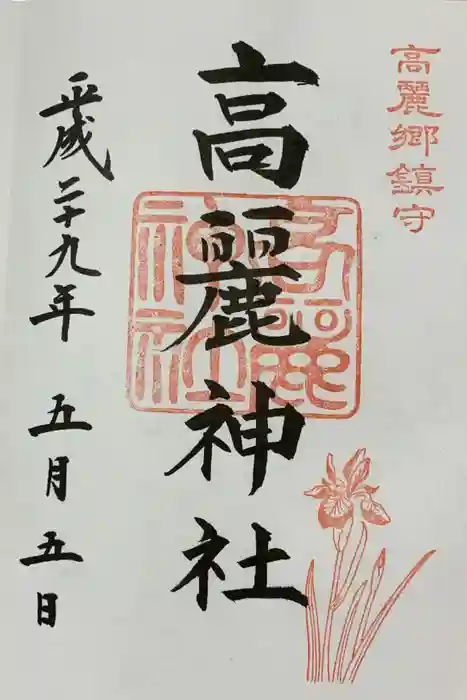 高麗郷鎮守
高麗神社
高麗神社
平成二十九年 五月五日